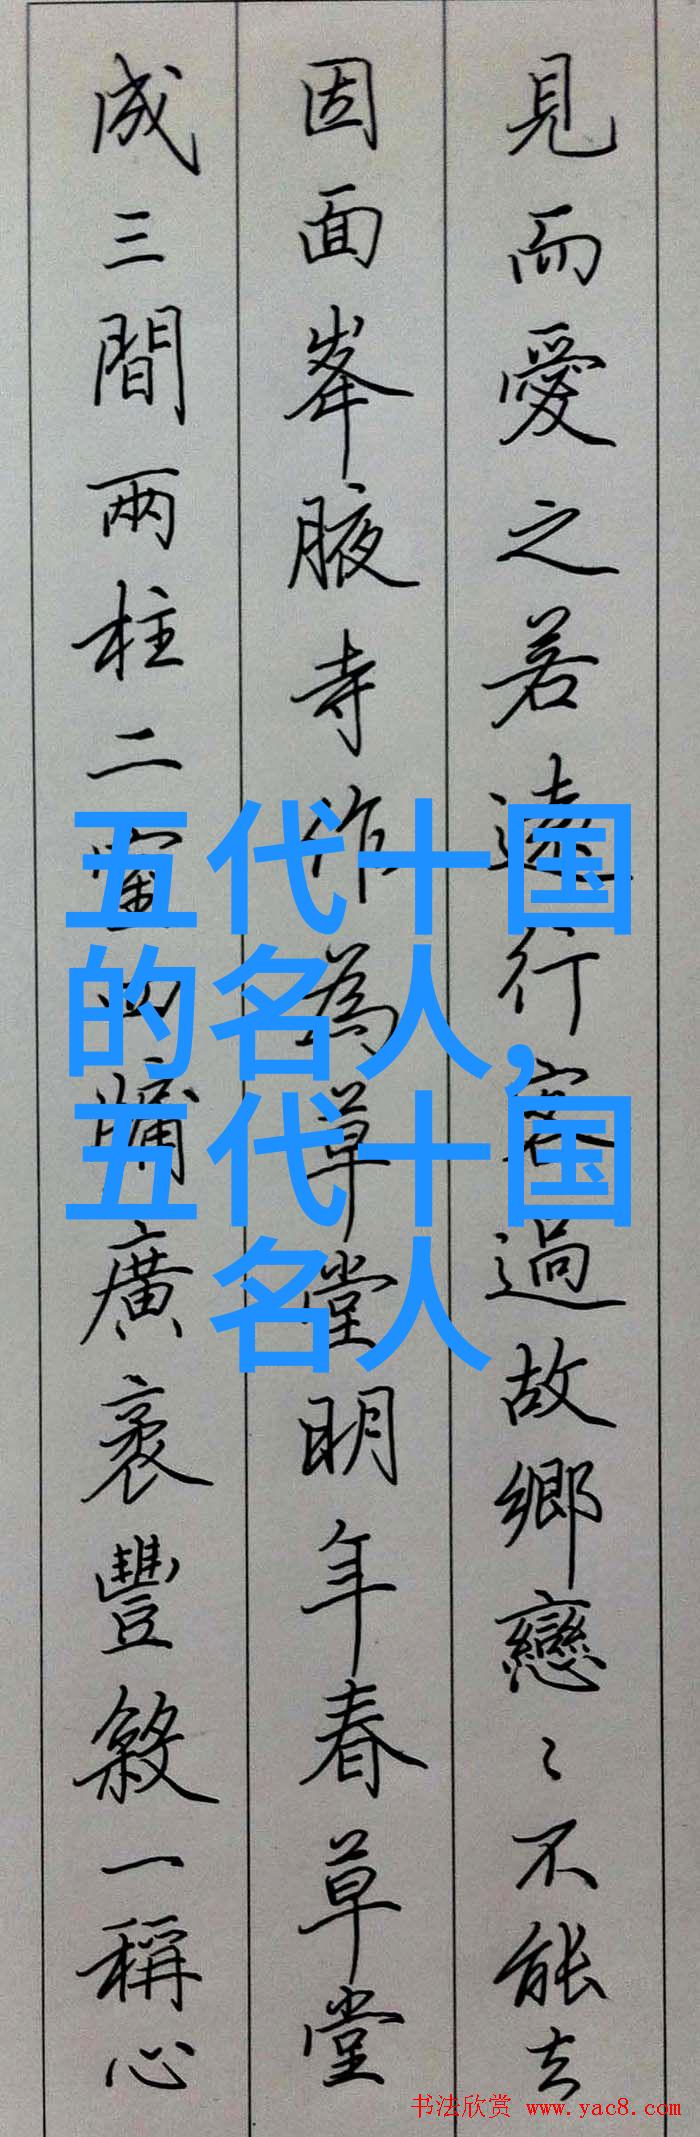 見而愛之若遠行客過故鄉戀〻不能去
因面峯腋寺作為草堂明年春草堂
成三間兩柱二室四牖廣袤豐殺一稱心
五代十国
的名人,
五代十国
名人
书法欣赏 www.yac8.com